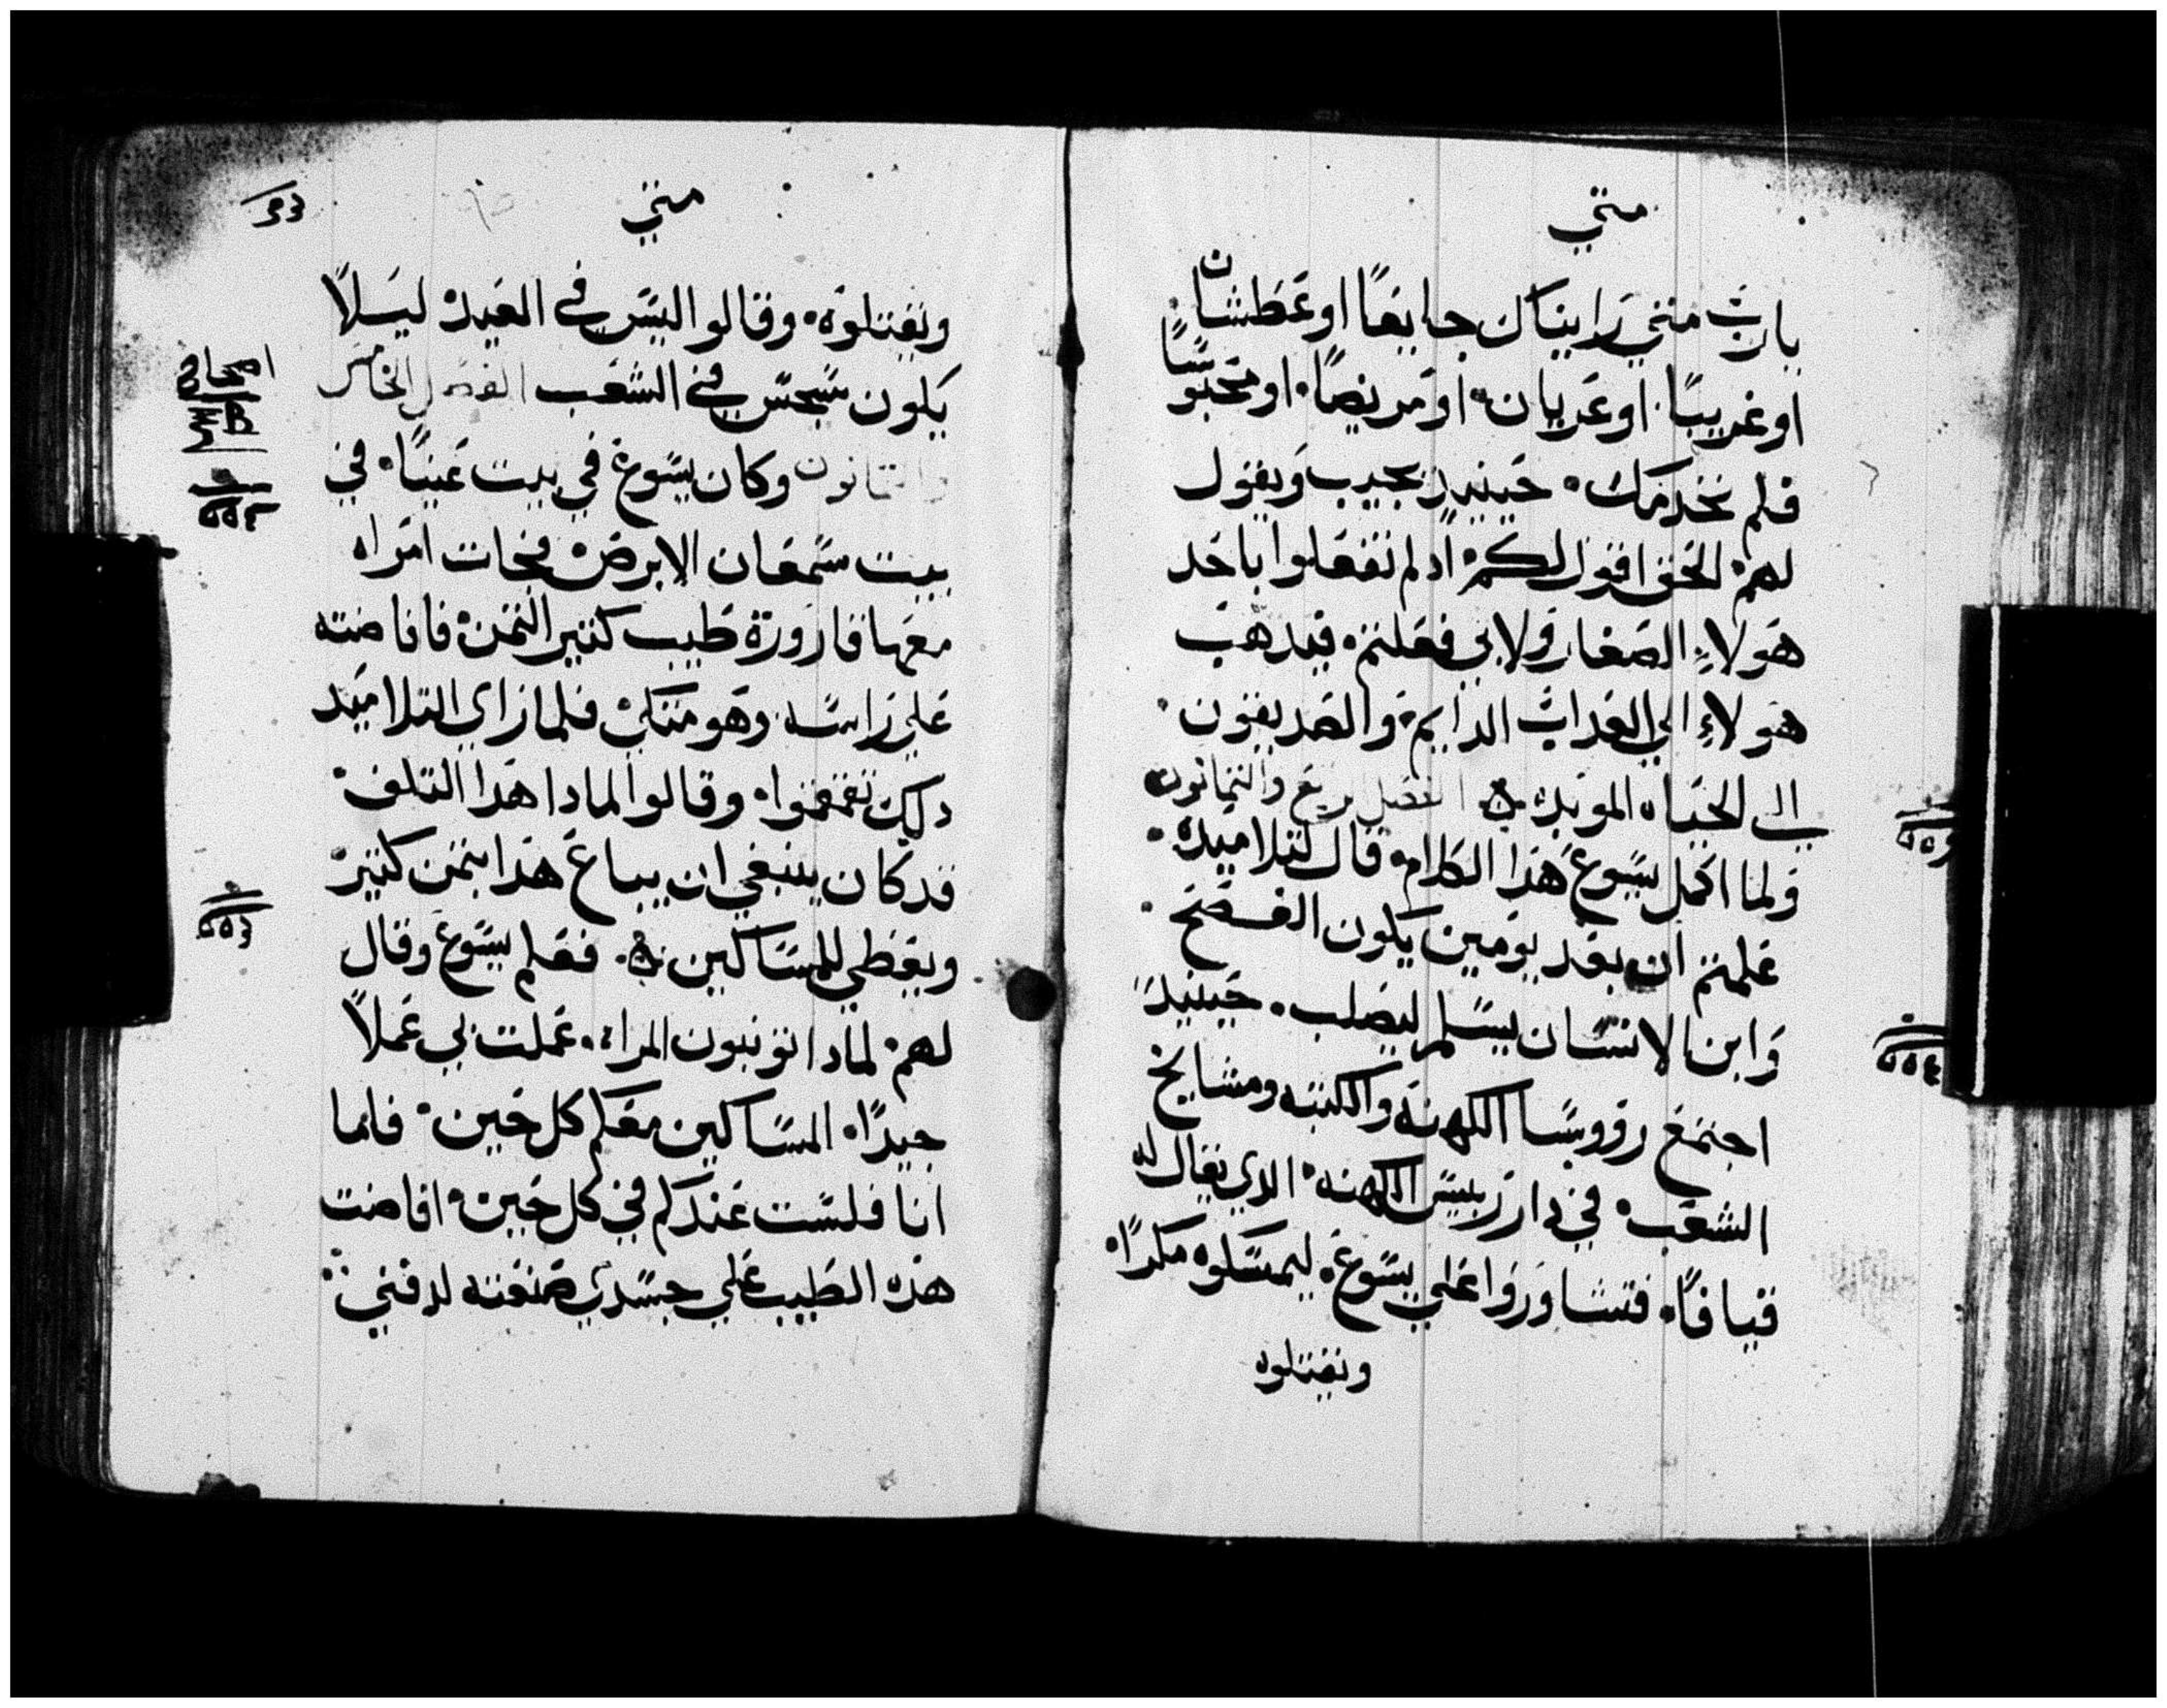 متي
يارب متي رايناك جايعًا او عطشان
او غريبًا. او عريان. او مريضًا. او محبوسًا
فلم نخدمك. حينيدٍ يجيب ويقول
لهم الحق اقول لكم اد لم تفعلوا باحد
هولاءِ الصغار ولا بي فعلتم. فيدهب
هولاءِ الي العداب الدايم. والصديقون.
الي الحياه الموبده. الفصل الرابع والتمانون
ولما اكمل يسوع هدا الكلام. قال لتلاميده.
علمتم ان بعد يومين يكون الفصح.
وابن الانسان يسلم ليصلب. حينيد
اجتمع رووسا الكهنة والكتبه ومشايخ
الشعب. في دار رييس الكهنه. الدي يقال له
قيافا. فتشاوروا علي يسوع. ليمسكوه مكرًا.
ويقتلوه
متي
ويقتلوه. وقالوا ليس في العيد ليلاً
يكون سجس في الشعب الفصل الخامس
والتمانون وكان يسوع في بيت عنيا. في
بيت سمعان الابرص. فجات امراه
معها قارورة طيب كتير التمن. فافاضته
علي راسه. وهو متكي. فلما راي التلاميد
دلك تقمقموا. وقالوا لمادا هدا التلف.
قد كان ينبغي ان يباع هدا بتمن كتير
ويعطي للمساكين. فعلم يسوع وقال
لهم. لمادا تونبون المراه. عملت بي عملاً
جيدًا. المساكين معكم كل حين. فاما
انا فلست عندكم في كل حين. افاضت
هده الطيب علي جسدي صنعته لدفني
اصحاح